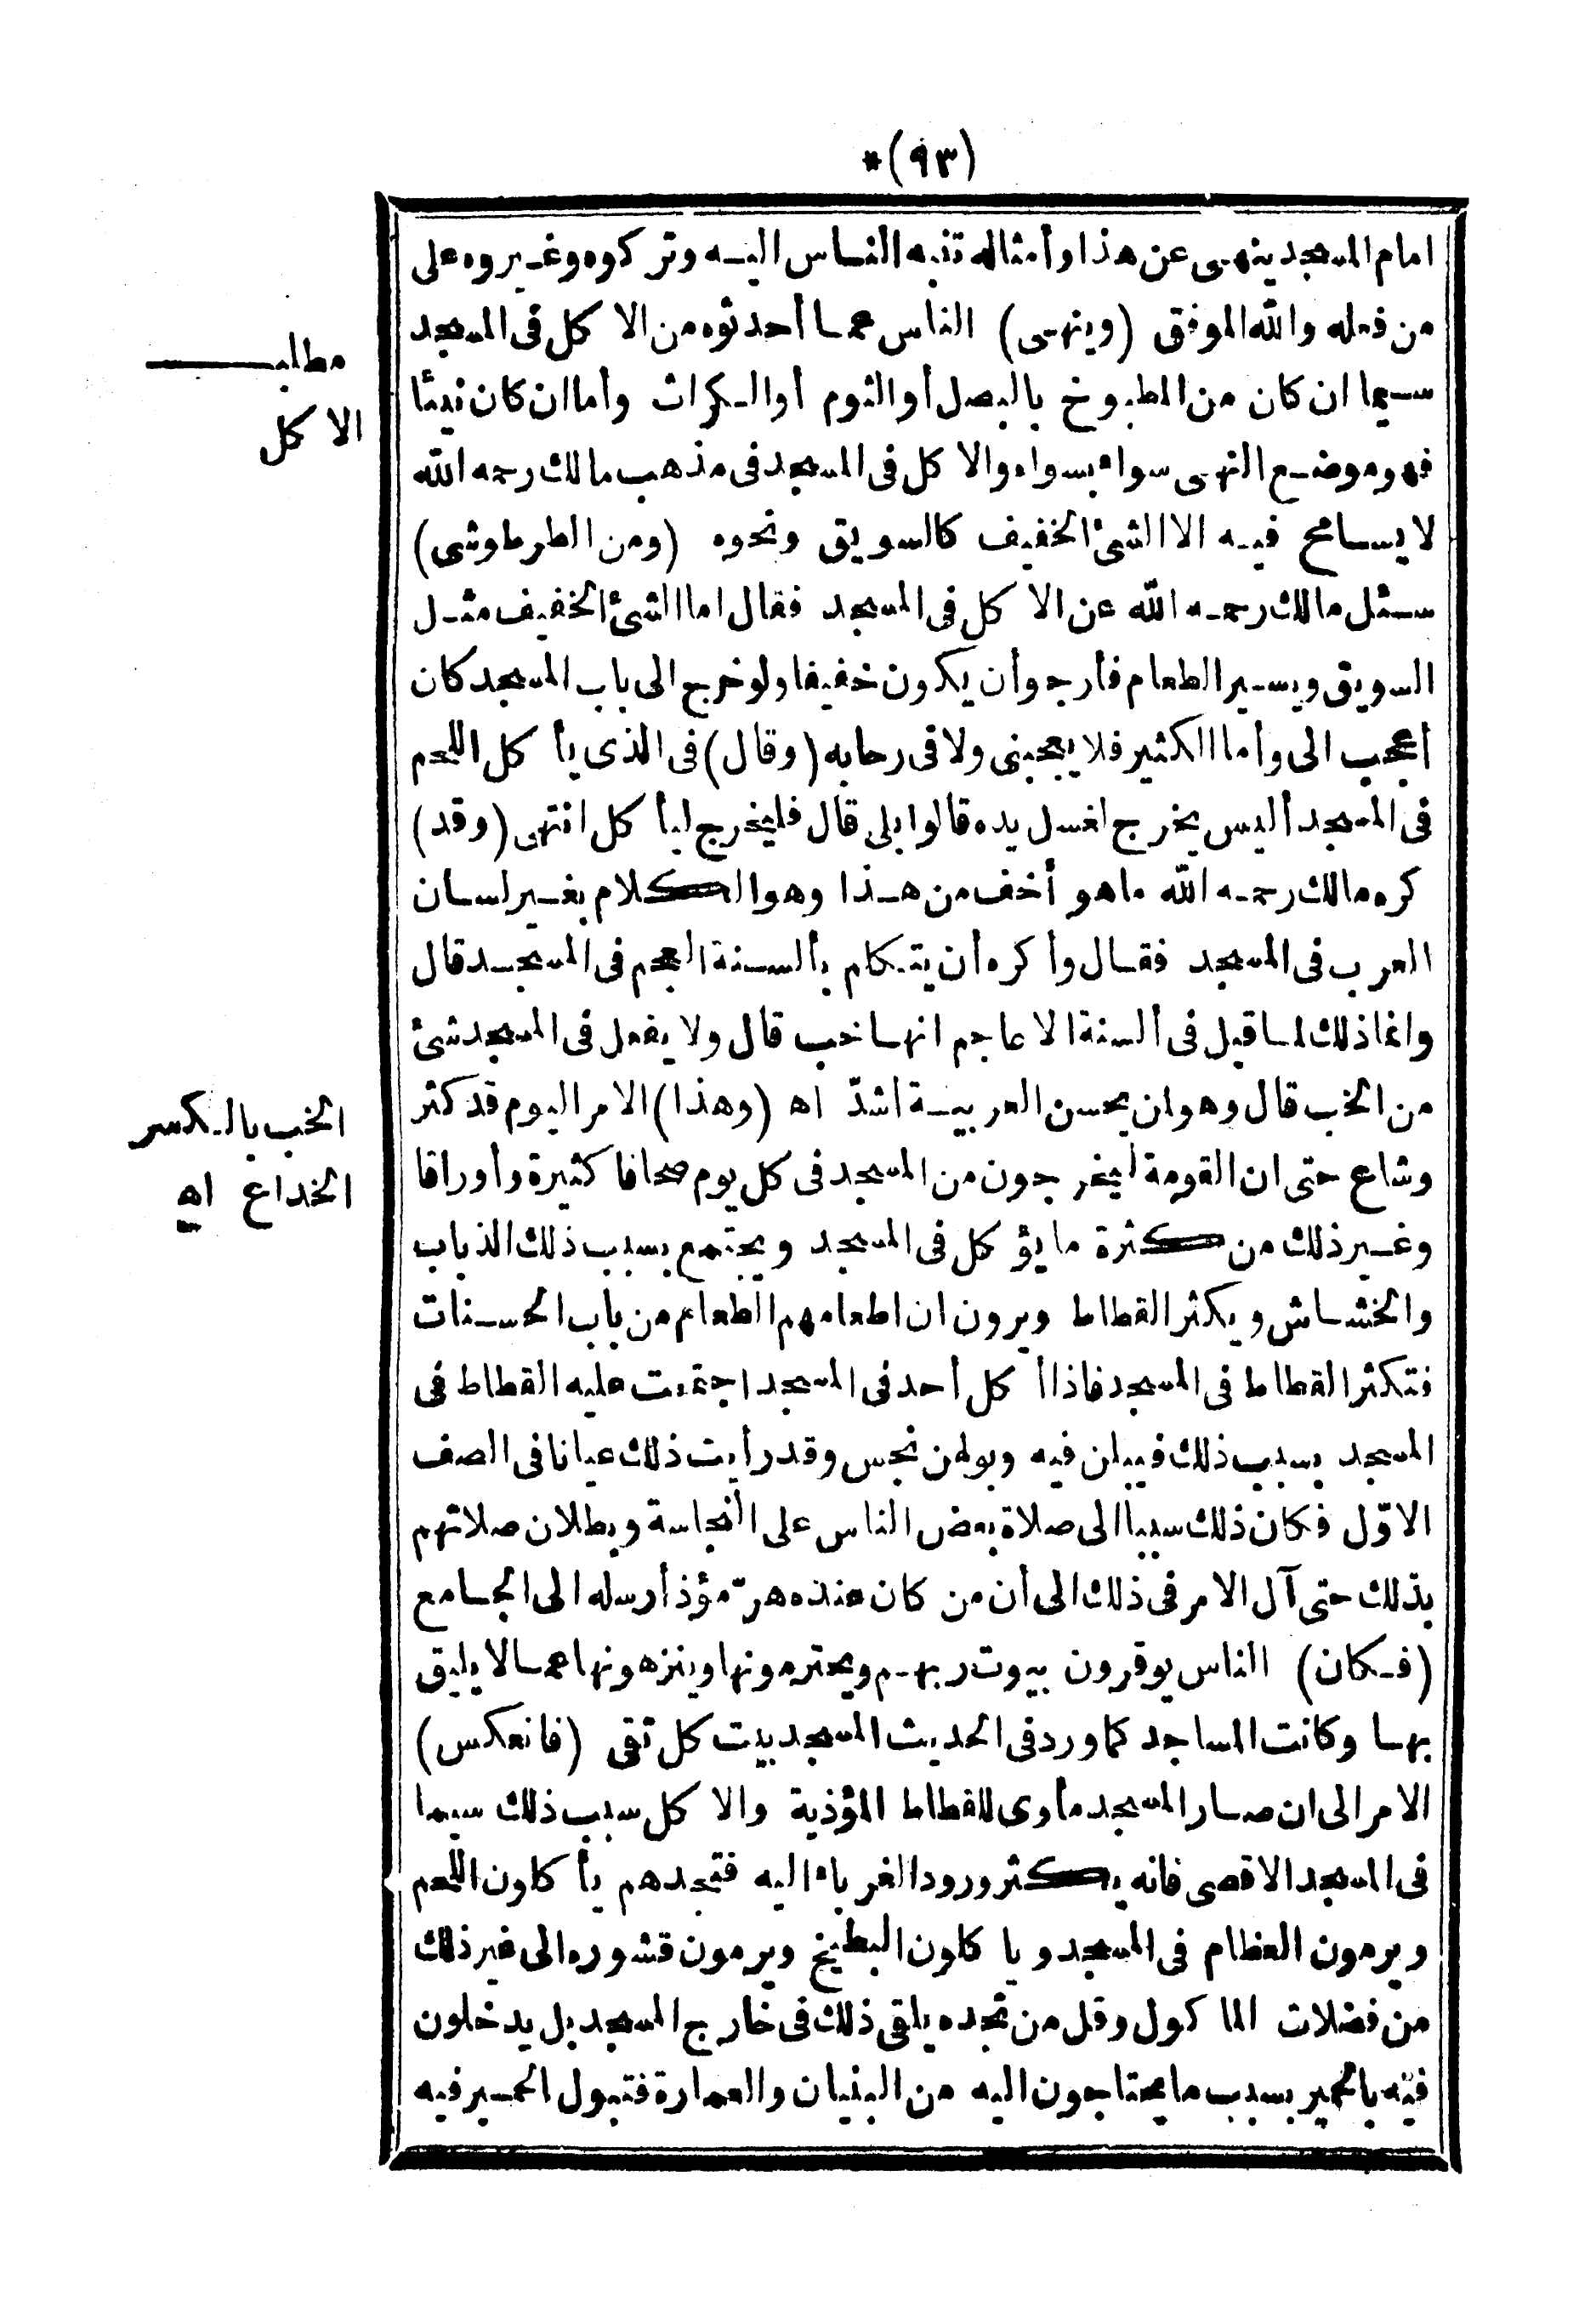 (٩٣)*
امام المسجد ينهى عن هذا وأمثاله تنبه الناس اليه وتركوه وغيروه على
من فعله والله الموفق (وينهى) الناس عما أحدثوه من الاكل فى المسجد
سيما ان كان من المطبوخ بالبصل أو الثوم أو الكراث وأما ان كان نيئا
فهو موضع النهى سواء بسواء والاكل فى المسجد فى مذهب مالك رحمه الله
لا يسامح فيه الا الشئ الخفيف كالسويق ونحوه (ومن الطرطوشى)
سئل مالك رحمه الله عن الاكل فى المسجد فقال اما الشئ الخفيف مثل
السويق ويسير الطعام فأرجو أن يكون خفيفا ولو خرج الى باب المسجد كان
أعجب الى وأما الكثير فلا يعجبنى ولا فى رحابه (وقال) فى الذى يأكل اللحم
فى المسجد أليس يخرج لغسل يده قالوا بلى قال فليخرج ليأكل انتهى (وقد)
كره مالك رحمه الله ما هو أخف من هذا وهو الكلام بغير لسان
العرب فى المسجد فقال وأكره أن يتكلم بألسنة العجم فى المسجد قال
وانما ذلك لما قيل فى ألسنة الاعاجم انها خب قال ولا يفعل فى المسجد شئ
من الخب قال وهو ان يحسن العربية أشدّ اه (وهذا) الامر اليوم قد كثر
وشاع حتى ان القومة ليخرجون من المسجد فى كل يوم صحافا كثيرة وأوراقا
وغير ذلك من كثرة ما يؤكل فى المسجد ويجتمع بسبب ذلك الذباب
والخشاش ويكثر القطاط ويرون ان اطعامهم الطعام من باب الحسنات
فتكثر القطاط فى المسجد فاذا أكل أحد فى المسجد اجتمعت عليه القطاط فى
المسجد بسبب ذلك فيبلن فيه وبولهن نجس وقد رأيت ذلك عيانا فى الصف
الاوّل فكان ذلك سببا الى صلاة بعض الناس على النجاسة وبطلان صلاتهم
بذلك حتى آل الامر فى ذلك الى أن من كان عنده هرّ مؤذ أرسله الى الجامع
(فكان) الناس يوقرون بيوت ربهم ويحترمونها وينزهونها عما لا يليق
بها وكانت المساجد كما ورد فى الحديث المسجد بيت كل تقى (فانعكس)
الامر الى ان صار المسجد مأوى للقطاط المؤذية والاكل سبب ذلك سيما
فى المسجد الاقصى فانه يكثر ورود الغرباء اليه فتجدهم يأكلون اللحم
ويرمون العظام فى المسجد وياكلون البطيخ ويرمون قشوره الى غير ذلك
من فضلات الماكول وقل من تجده يلقى ذلك فى خارج المسجد بل يدخلون
فيه بالحمير بسبب ما يحتاجون اليه من البنيان والعمارة فتبول الحمير فيه
مطلب
الاكل
الخب بالكسر
الخداع اه